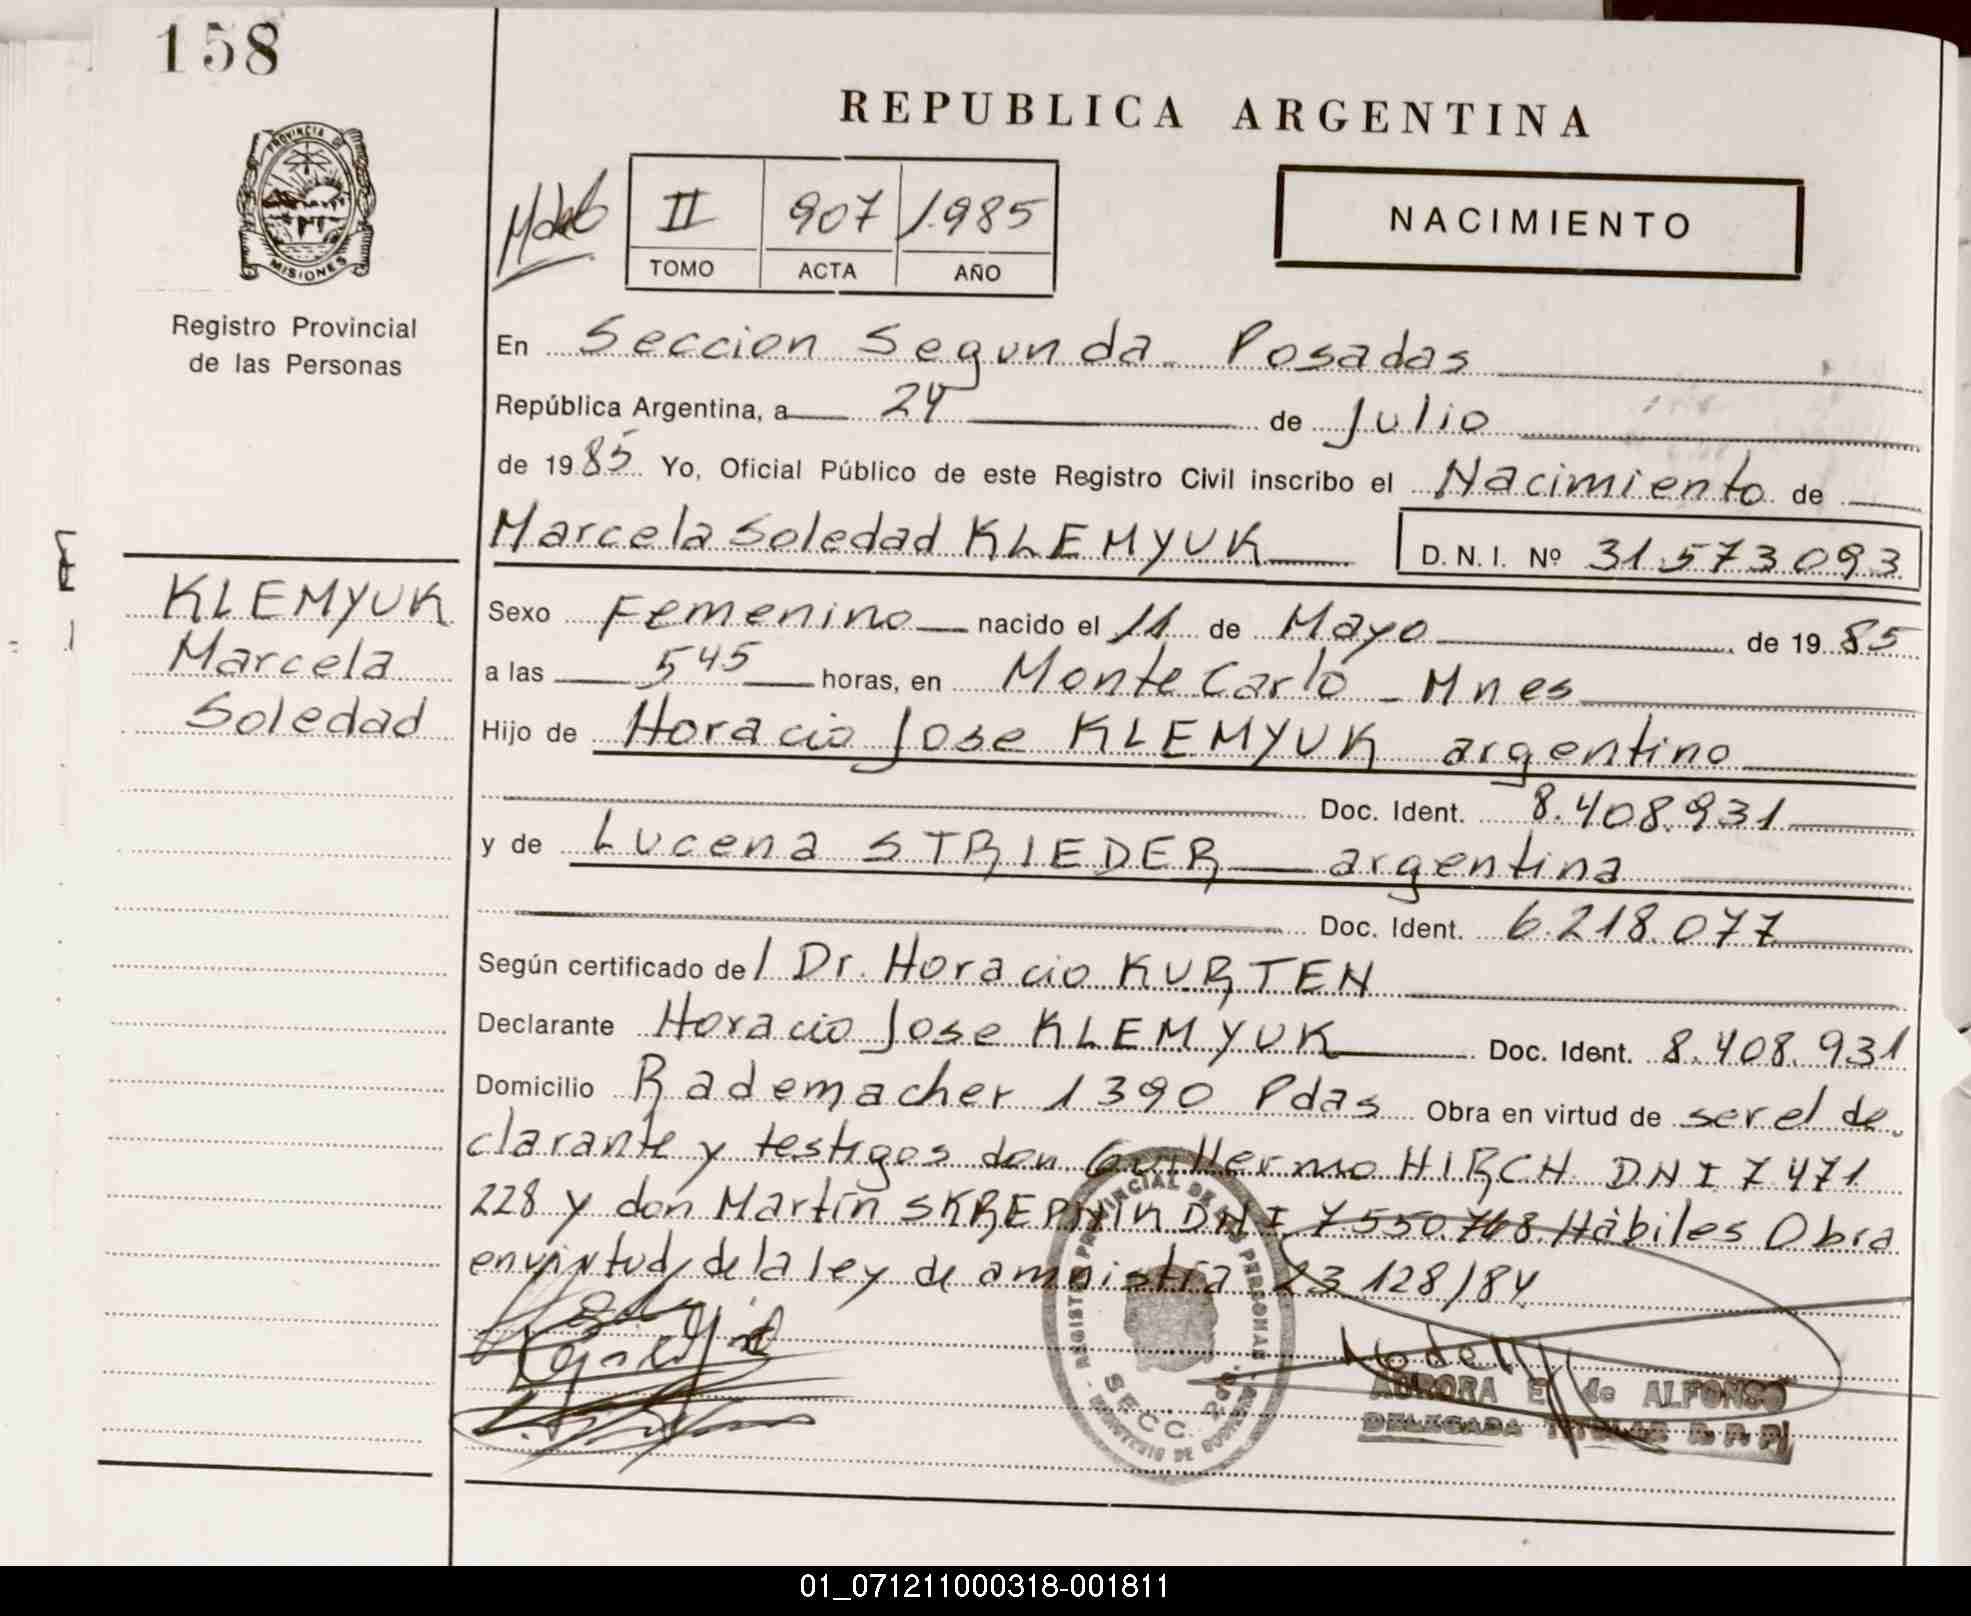 158
REPUBLICA ARGENTINA
PROVINCIA DE
MISIONES
Registro Provincial
de las Personas
II 907 1.985
TOMO ACTA AÑO
NACIMIENTO
En Seccion Segunda Posadas
República Argentina, a 24 de Julio
de 1985 Yo, Oficial Público de este Registro Civil inscribo el Nacimiento de
Marcela Soledad KLEMYUK D.N.I. Nº 31.573093
KLEMYUK
Marcela
Soledad
Sexo Femenino nacido el 11 de Mayo de 1985
a las 545 horas, en Monte Carlo - Mnes
Hijo de Horacio Jose KLEMYUK argentino
Doc. Ident. 8.408.931
y de Lucena STRIEDER argentina
Doc. Ident. 6.218.077
Según certificado del Dr. Horacio KURTEN
Declarante Horacio Jose KLEMYUK Doc. Ident. 8.408.931
Domicilio Rademacher 1390 Pdas Obra en virtud de ser el de
clarante y testigos don Guillermo HIRCH DNI 7.471.
228 y don Martín SKREPNIK DNI 7.550.768 Hàbiles Obra
en virtud de la ley de amnistía 23.128/84
REGISTRO PROVINCIAL DE LAS PERSONAS
SECC. 2da.
MINISTERIO DE GOBIERNO
AURORA E. de ALFONSO
DELEGADA TITULAR R. P. P.
01_071211000318-001811